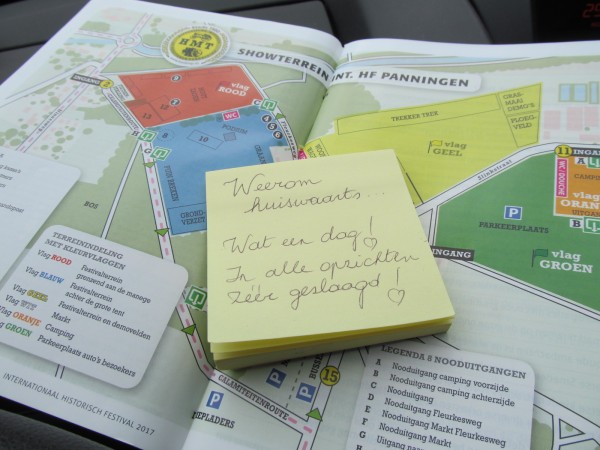 HMT
SHOWTERREIN INT. HF PANNINGEN
INGANG 2
vlag
ROOD
13
12
C
WC
10
ORANJE
FUN BIKEN
GROND-
VERZET
G
BOS
TREKKER TREK
GRAS-
MAAI
DEMO'S
PLOEG-
VELD
vlag
GEEL
11
INGANG
A
CAMPING
WC DOUCHE
vlag
ORANJE
UITGANG
B
P
PARKEERPLAATS
INGANG
vlag
GROEN
Weerom
huiswaarts...
Wat een dag!
In alle opzichten
zéér geslaagd!
TERREININDELING
MET KLEURVLAGGEN
Vlag ROOD Festivalterrein
grenzend aan de manage
Vlag BLAUW Festivalterrein
achter de grote tent
Vlag GEEL Festivalterrein en demovelden
Vlag WIT Markt
Vlag ORANJE Camping
Vlag GROEN Parkeerplaats auto's bezoekers
INTERNATIONAAL HISTORISCH FESTIVAL 2017
P
P
P
15
CALAMITEITENROUTE
LEGENDA 8 NOODUITGANGEN
A Nooduitgang camping voorzijde
B Nooduitgang camping achterzijde
C Nooduitgang
D Nooduitgang Fleurkesweg
E Nooduitgang Markt Fleurkesweg
F Nooduitgang Markt
G